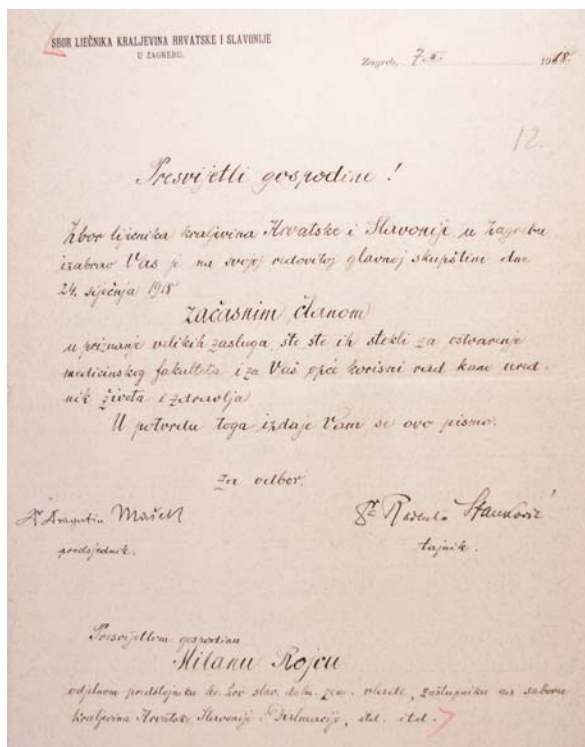 SBOR LIEČNIKA KRALJEVINA HRVATSKE I SLAVONIJE
U ZAGREBU.
Zagreb, 7. II. 1918.
12.
Presvijetli gospodine !
Zbor liječnika kraljevina Hrvatske i Slavonije u Zagrebu
izabrao Vas je na svojoj redovitoj glavnoj skupštini dne
24. siječnja 1918
začasnim članom
u priznanje velikih zasluga, što ste ih stekli za ostvarenje
medicinskog fakulteta i za Vaš opće korisni rad kano ured-
nik života i zdravlja
U potvrdu toga izdaje Vam se ovo pismo.
Za odbor.
Dr Dragutin Mašek
predsjednik.
Dr Radenko Stanković
tajnik.
Presvijetlom gospodinu
Milanu Rojcu
odjelnom predstojniku kr. hrv. slav. dalm. zem. vlade, zastupniku na saboru
kraljevina Hrvatske Slavonije i Dalmacije, itd. itd.